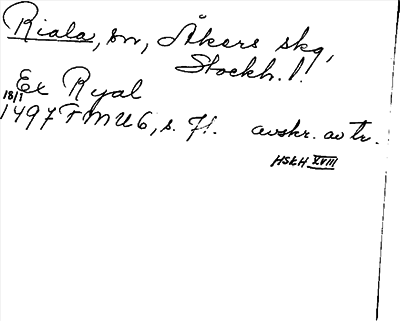 Riala, sn, Åkers skg,
Stockh. l.
Ex Ryal
18/1
1497 FMU 6, s. 71. avskr. av tr.
HSH XVIII